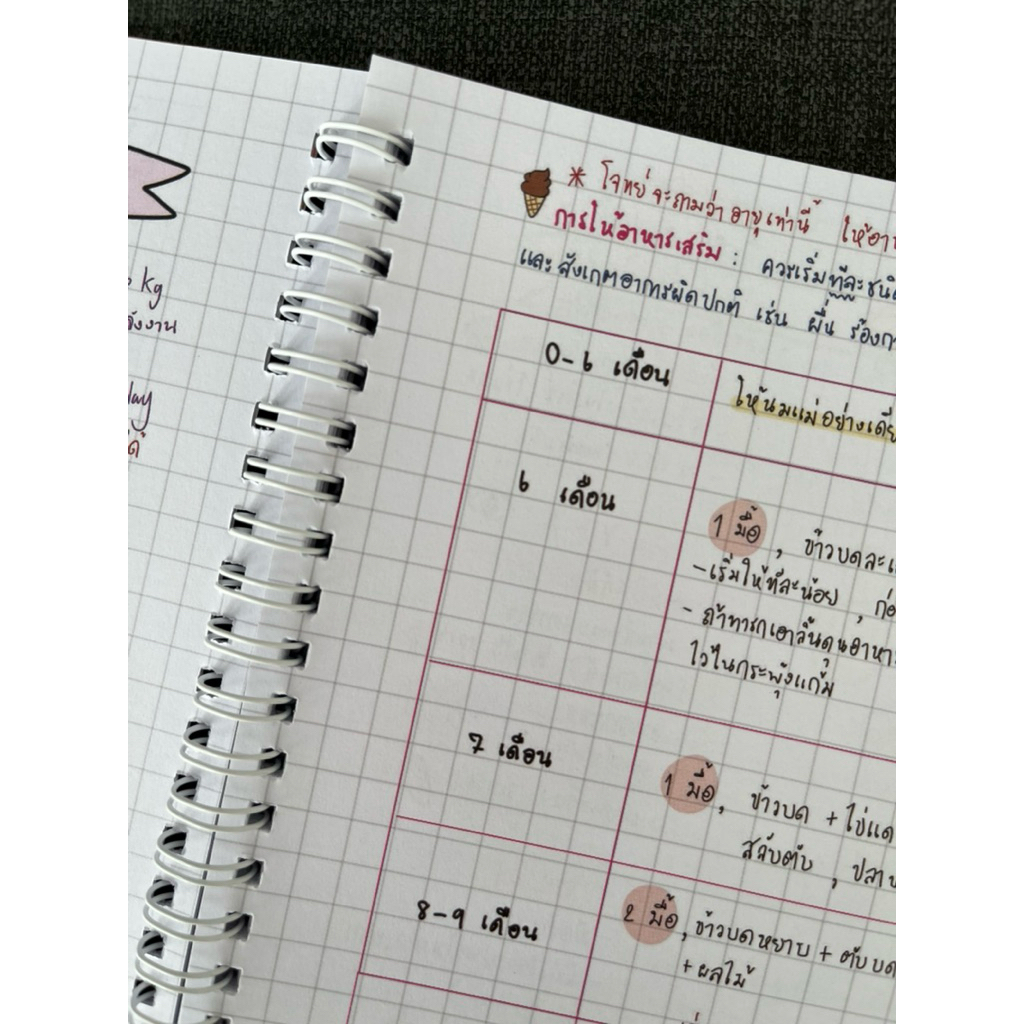 kg
lay
* โจทย์จะถามว่าอายุเท่านี้ ให้อา
การให้อาหารเสริม : ควรเริ่มทีละชนิด
และสังเกตอาการผิดปกติ เช่น ผื่น ร้องก
0-6 เดือน
ให้นมแม่อย่างเดีย
6 เดือน
1 มื้อ , ข้าวบดละเ
-เริ่มให้ทีละน้อย , ก่อ
- ถ้าทารกเอาลิ้นดุนอาหา
ไว้ในกระพุ้งแก้ม
7 เดือน
1 มื้อ , ข้าวบด + ไข่แด
สลับตับ , ปลา
8-9 เดือน
2 มื้อ , ข้าวบดหยาบ + ตับบด
+ ผลไม้